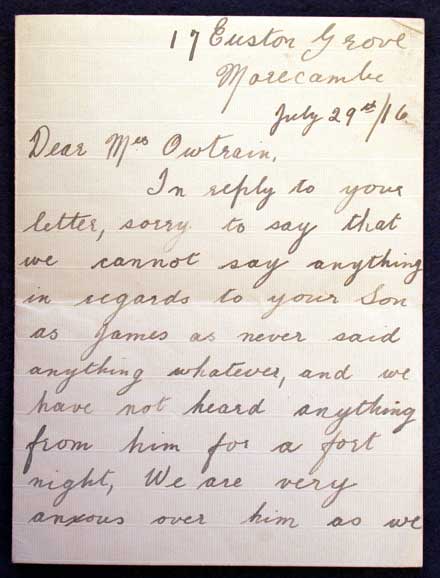 17 Euston Grove
Morecambe
July 29st/16
Dear Mrs Owtrain,
In reply to your
letter, sorry to say that
we cannot say anything
in regards to your Son
as James as never said
anything whatever, and we
have not heard anything
from him for a fort
night, We are very
anxous over him as we